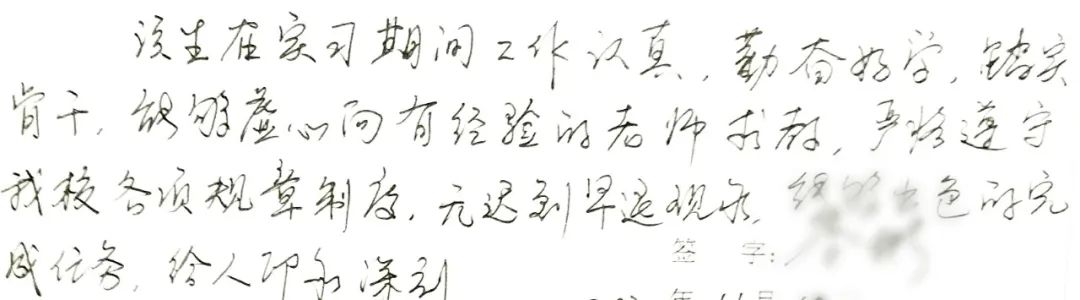 该生在实习期间工作认真，勤奋好学，踏实
肯干，能够虚心向有经验的老师求教，严格遵守
我校各项规章制度，无迟到早退现象，能够出色的完
成任务，给人印象深刻
签 字：
年 11 月